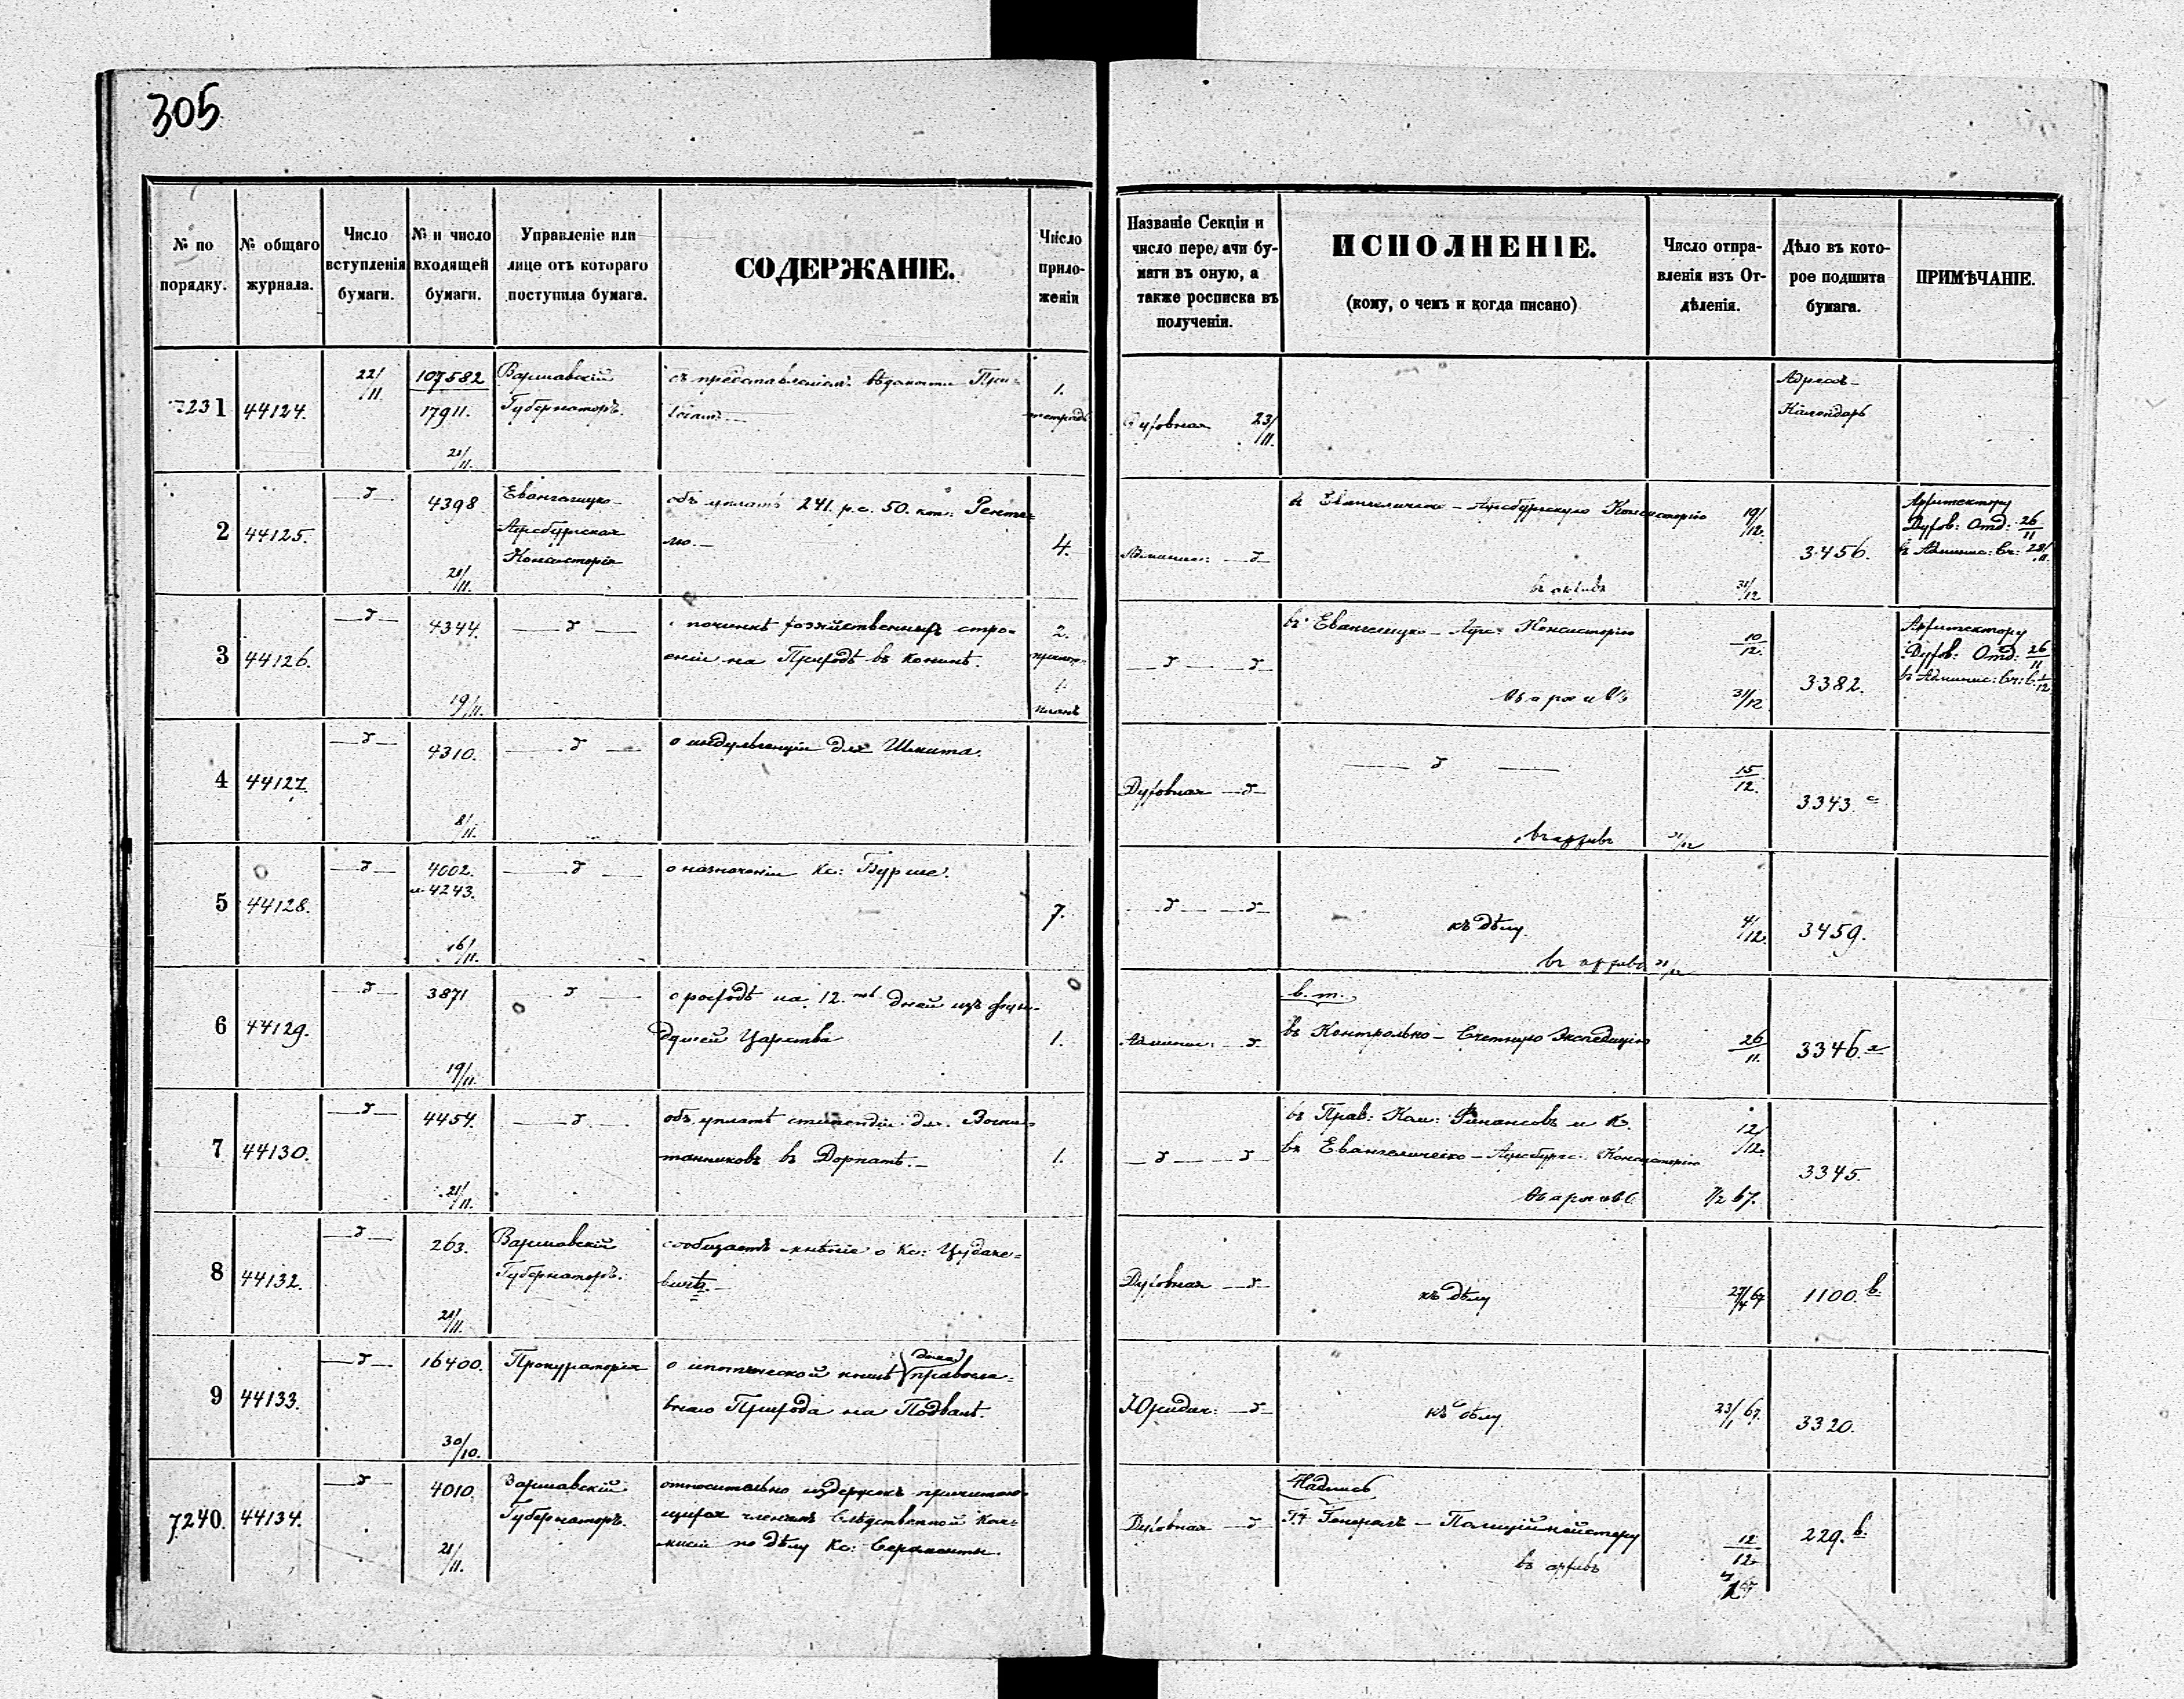 305
№ по порядку.
№ общаго журнала.
Число вступленія бумаги.
№ и число входящей бумаги.
Управленіе или лице отъ котораго поступила бумага.
СОДЕРЖАНІЕ.
Число приложеніи
Названіе Секціи и число передачи бумаги въ оную, а также росписка въ полученіи.
ИСПОЛНЕНІЕ.
(кому, о чемъ и когда писано)
Число отправленія изъ Отдѣленія.
Дѣло въ которое подшита бумага.
ПРИМѢЧАНІЕ.
7231 44124. 22/11 107582
17911.
21/11.
Варшавскій
Губернаторъ.
съ представленіемъ вѣдомости
1.
тетрадь
Духовная 23/11.
Адресъ-
Календарь
2 44125. 4398
21/11.
Евангелицко-
Аугсбургская
Консисторія
объ уплатѣ 241. р.с. 50. коп:
лю.—
4.
Админис:
въ Евангелическо-Аугсбургскую Консисторію 19/12.
въ архивъ 31/12
3456.
Архитектору
Духов: Отд: 26/11
въ Админис: Сч: 28/11.
3 44126. 4344.
19/11.
о починкѣ хозяйственныхъ стро=
еніи на Приходѣ въ Конинѣ.
2.
1.
планъ
въ Евангелицко-Аугс: Консисторію 10/12.
въ архивъ 31/12
3382.
Архитектору
Духов: Отд: 26/11
въ Админис: Сч:
4 44127. 4310.
8/11.
о индульгенціи для Шмита.
Духовная
15/12.
въ архивъ 31/12
3343.
5 44128. 4002.
и 4243.
16/11.
о назначеніи Кс: Бурше.
7.
къ дѣлу. 4/12.
въ архивъ 31/12
3459.
6 44129. 3871
19/11.
о расходѣ на 12. дней изъ фун=
душей Царства
1.
Админис:
в. т.
въ Контрольно-Счетную Экспедицію 26/11.
3346.а
7 44130. 4454.
21/11.
объ уплатѣ стипендіи для Воспи=
танниковъ въ Дорпатѣ.—
1.
въ Прав: Ком: Финансовъ и К. 12/12.
въ Евангелическо-Аугсбургс: Консисторію
въ архивъ 7/2 67.
3345.
8 44132. 263.
21/11.
Варшавскій
Губернаторъ.
сообщаетъ мнѣніе о Кс:
вичѣ.—
Духовная
къ дѣлу 27/4 67
1100.в.
9 44133. 16400.
30/10.
Прокураторія
о ипотеческой книгѣ (дома) православ=
наго Прихода на Подвалѣ.
Юридич:
къ дѣлу 23/1 67.
3320.
7240. 44134. 4010.
21/11.
Варшавскій
Губернаторъ.
относительно издержекъ причитаю=
щихся членамъ Слѣдственной Ком=
мисіи по дѣлу Кс:
Духовная
Надпись
Гг. Генералъ-Полиціймейстеру 12/12
въ архивъ
229.в.